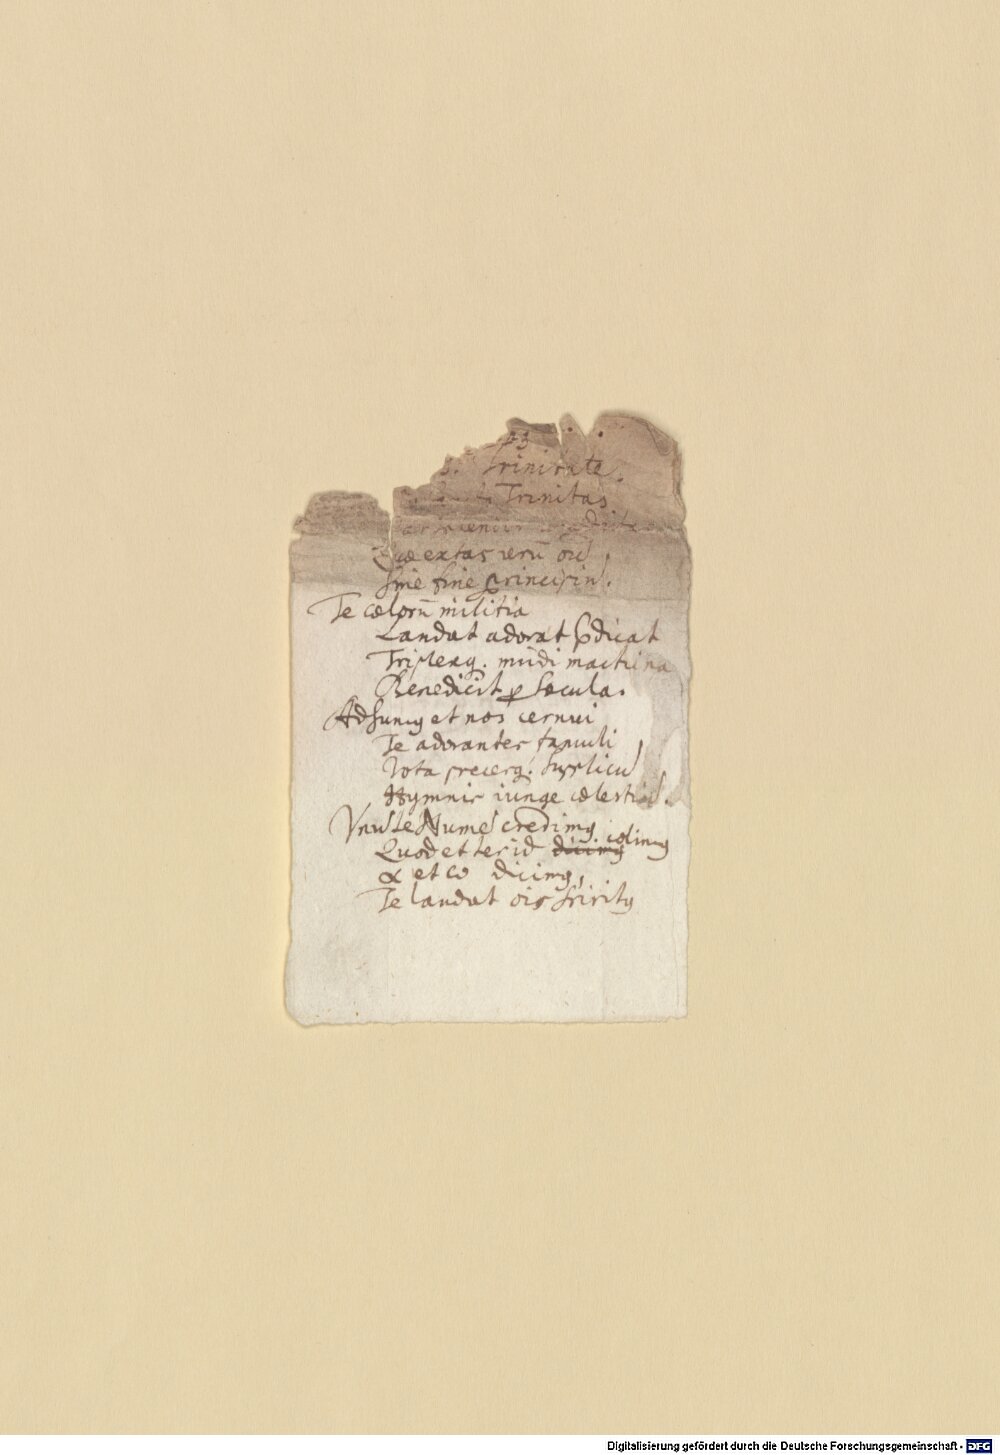 Trinitate.
Trinitas
Quæ extas rerū oīū,
Sine fine principiū.
Te cœlorū militia
Laudat adorat p̄dicat
Triplexq. mūdi machina
Benedicit ꝑ sæcula.
Adsumꝯ et nos cernui
Te adorantes famuli
Vota precesq. supplicū,
Hymnis iunge cœlestiū.
Vnū te Numē credimꝯ
Quod et ter id dicimꝯ colimꝯ
α et ω dicimꝯ,
Te laudat oīs spiritꝯ
Digitalisierung gefördert durch die Deutsche Forschungsgemeinschaft - DFG